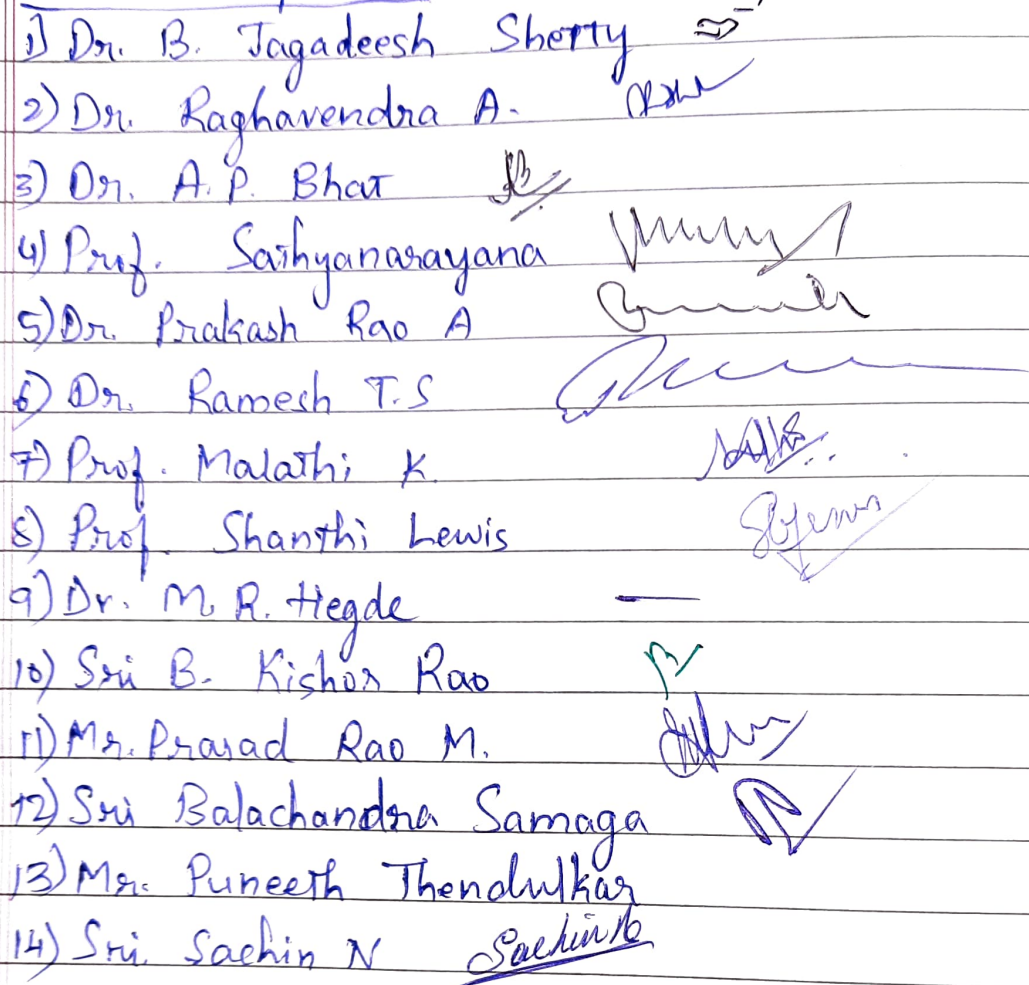 1) Dr. B. Jagadeesh Shetty
2) Dr. Raghavendra A.
3) Dr. A. P. Bhat
4) Prof. Sathyanarayana
5) Dr. Prakash Rao A
6) Dr. Ramesh T.S
7) Prof. Malathi K.
8) Prof. Shanthi Lewis
9) Dr. M. R. Hegde —
10) Sri B. Kishor Rao
11) Mr. Prasad Rao M.
12) Sri Balachandra Samaga
13) Mr. Puneeth Thendulkar
14) Sri. Sachin N Sachin N